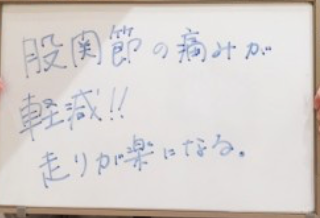 股関節の痛みが
軽減!!
走りが楽になる。